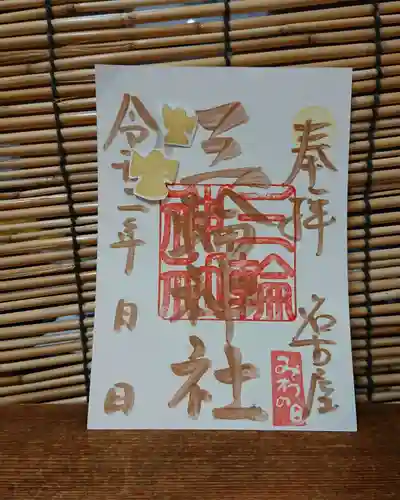 奉拝
名古屋
三輪神社
三輪神社
みわの日
令和三年 月 日